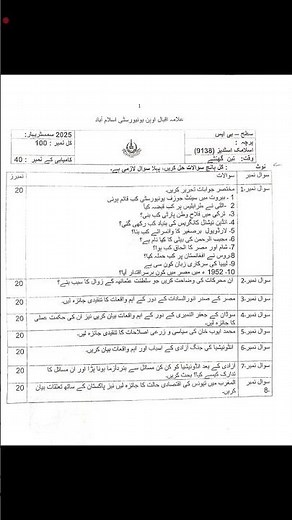 1
علامہ اقبال اوپن یونیورسٹی اسلام آباد
سطح – بی ایس
سمسٹر بہار: 2025
پرچہ: اسلامک اسٹڈیز (9138)
کل نمبر: 100
وقت: تین گھنٹے
کامیابی کے نمبر: 40
نوٹ: کل پانچ سوالات حل کریں، پہلا سوال لازمی ہے۔
سوالات
نمبرز
سوال نمبر-1 مختصر جوابات تحریر کریں۔ 20
1 - بیروت میں سینٹ جوزف یونیورسٹی کب قائم ہوئی
2 - اٹلی نے طرابلس پر کب قبضہ کیا
3 - ترکی میں فلاح وطن پارٹی کب بنی؟
4 - انڈین نیشنل کانگریس کی بنیاد کب رکھی گئی؟
5 - لارڈویول برصغیر کا وائسرائے کب بنا؟
6 - مجیب الرحمن کی بیٹی کا کیا نام ہے؟
7 - شام اور مصر کا الحاق کب ہوا؟
8 - روس نے افغانستان پر کب حملہ کیا؟
9 - لیبیا کی سرکاری زبان کون سی ہے
10 - 1952ء میں مصر میں کون برسراقتدار آیا؟
سوال نمبر-2 ان محرکات کی وضاحت کریں جو سلطنت عثمانیہ کے زوال کا سبب بنے؟ 20
سوال نمبر-3 مصر کے صدر انورالسادات کے دور کے اہم واقعات کا تنقیدی جائزہ لیں۔ 20
سوال نمبر-4 سوڈان کے جعفر النمیری کے دور کے اہم واقعات بیان کریں نیز ان کی حکمت عملی کا جائزہ لیں۔ 20
سوال نمبر-5 محمد ایوب خان کی سیاسی و زرعی اصلاحات کا تنقیدی جائزہ لیں۔ 20
سوال نمبر-6 انڈونیشیا کی جنگ آزادی کے اسباب اور اہم واقعات بیان کریں۔ 20
سوال نمبر-7 آزادی کے بعد انڈونیشیا کو کن کن مسائل سے نبردآزما ہونا پڑا اور ان مسائل کا تدارک کیسے کیا؟ بحث کریں۔ 20
سوال نمبر-8 المغرب میں تیونس کی اقتصادی حالت کا جائزہ لیں نیز پاکستان کے ساتھ تعلقات بیان کریں۔ 20